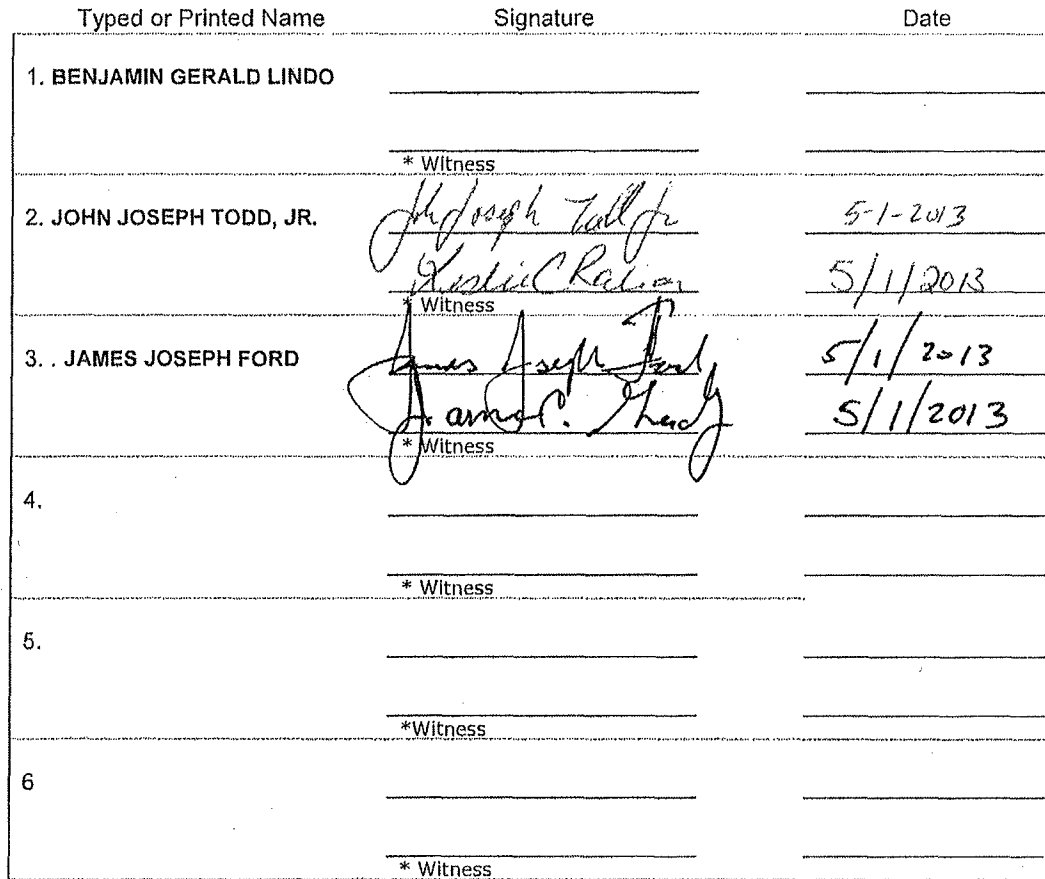 Typed or Printed Name Signature Date
1. BENJAMIN GERALD LINDO
* Witness
2. JOHN JOSEPH TODD, JR. John Joseph Todd Jr 5-1-2013
5/1/2013
* Witness
3. . JAMES JOSEPH FORD James Joseph Ford 5/1/2013
5/1/2013
* Witness
4.
* Witness
5.
*Witness
6
* Witness